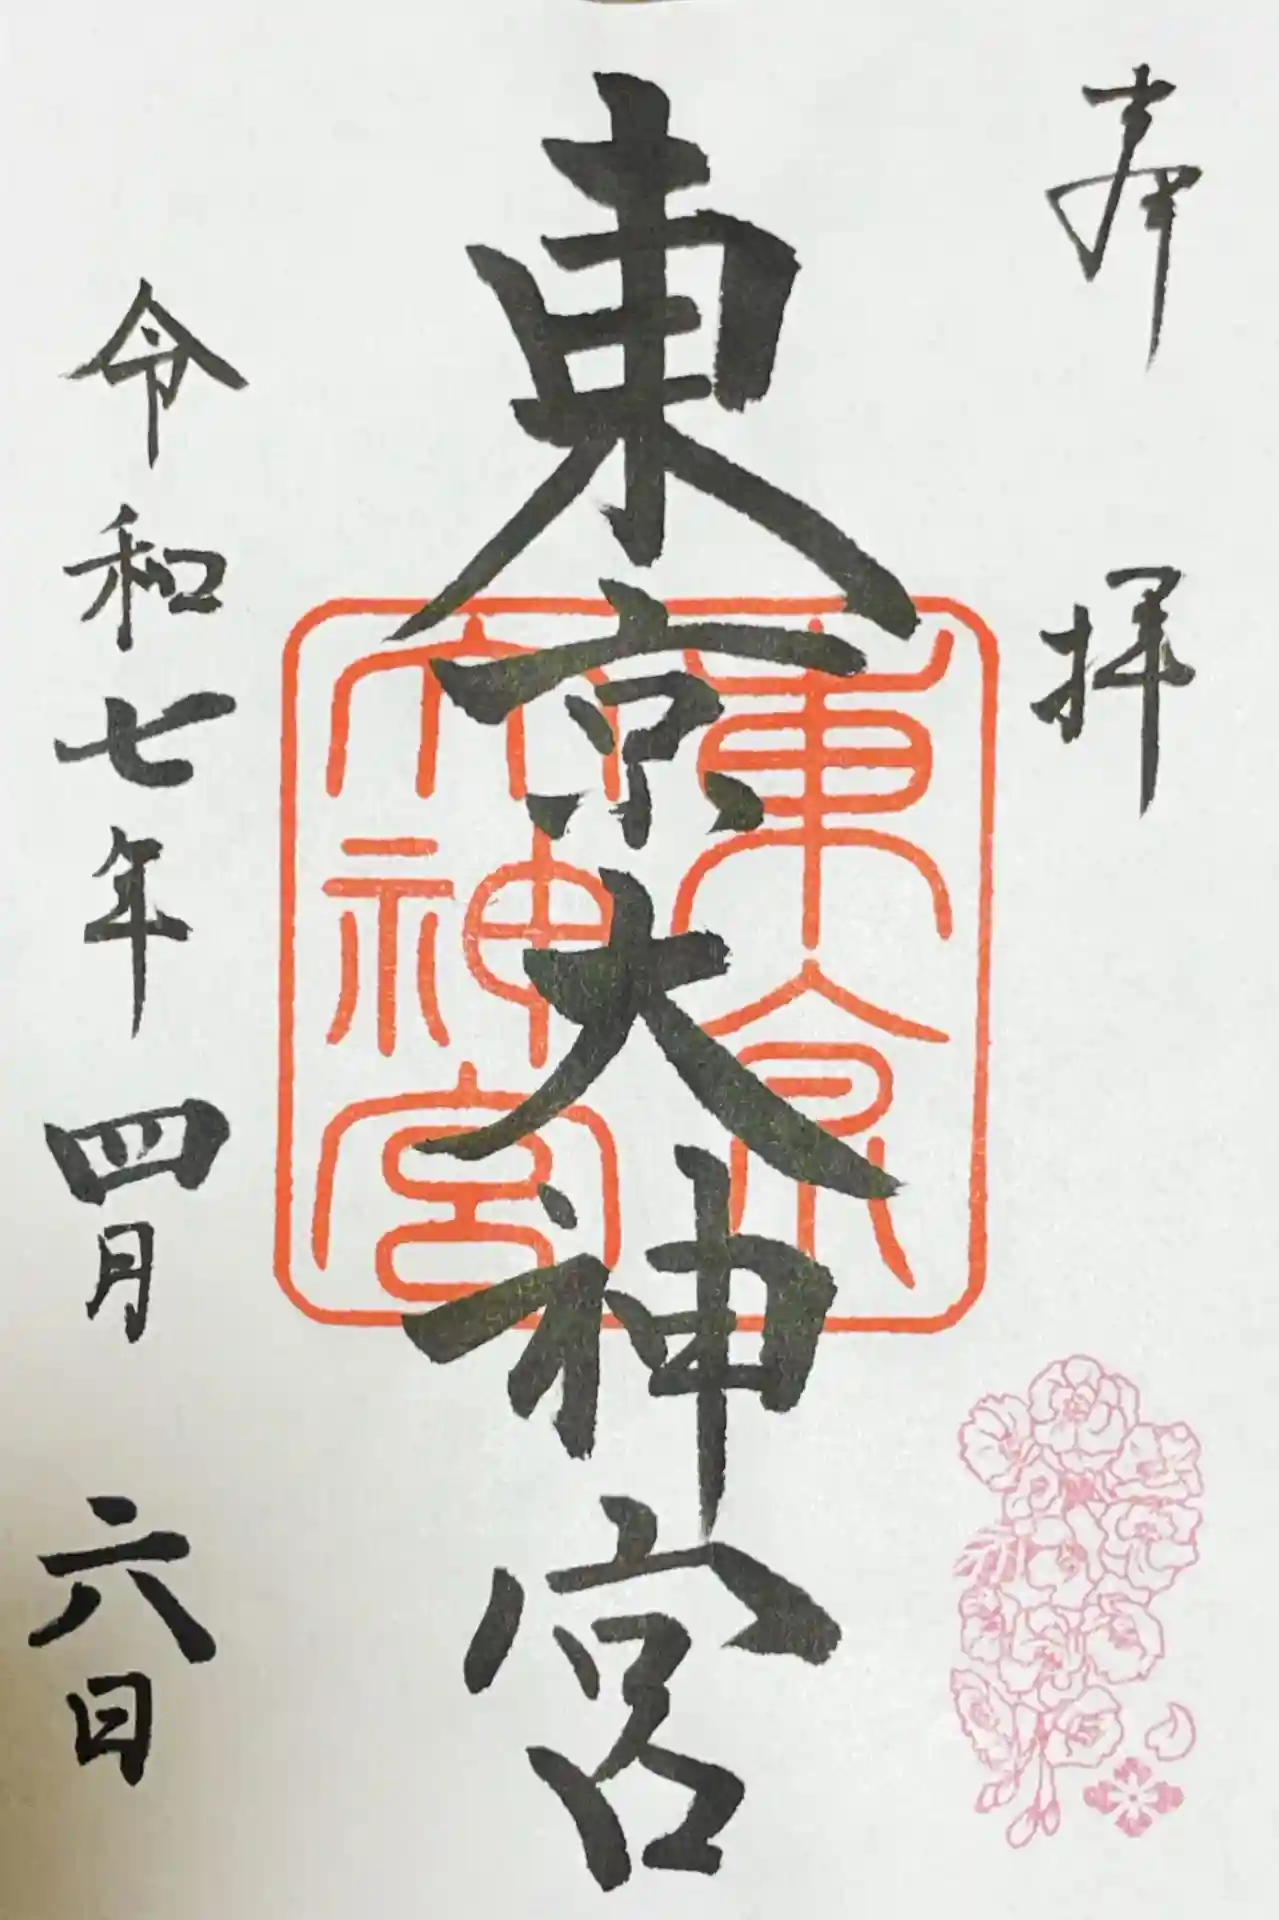 奉拝
東京大神宮
東京
大神宮
令和七年四月六日